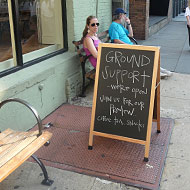 GROUND
SUPPORT
we're open
JOIN US FOR OUR
PREVIEW
COFFEE TEA SNACKS